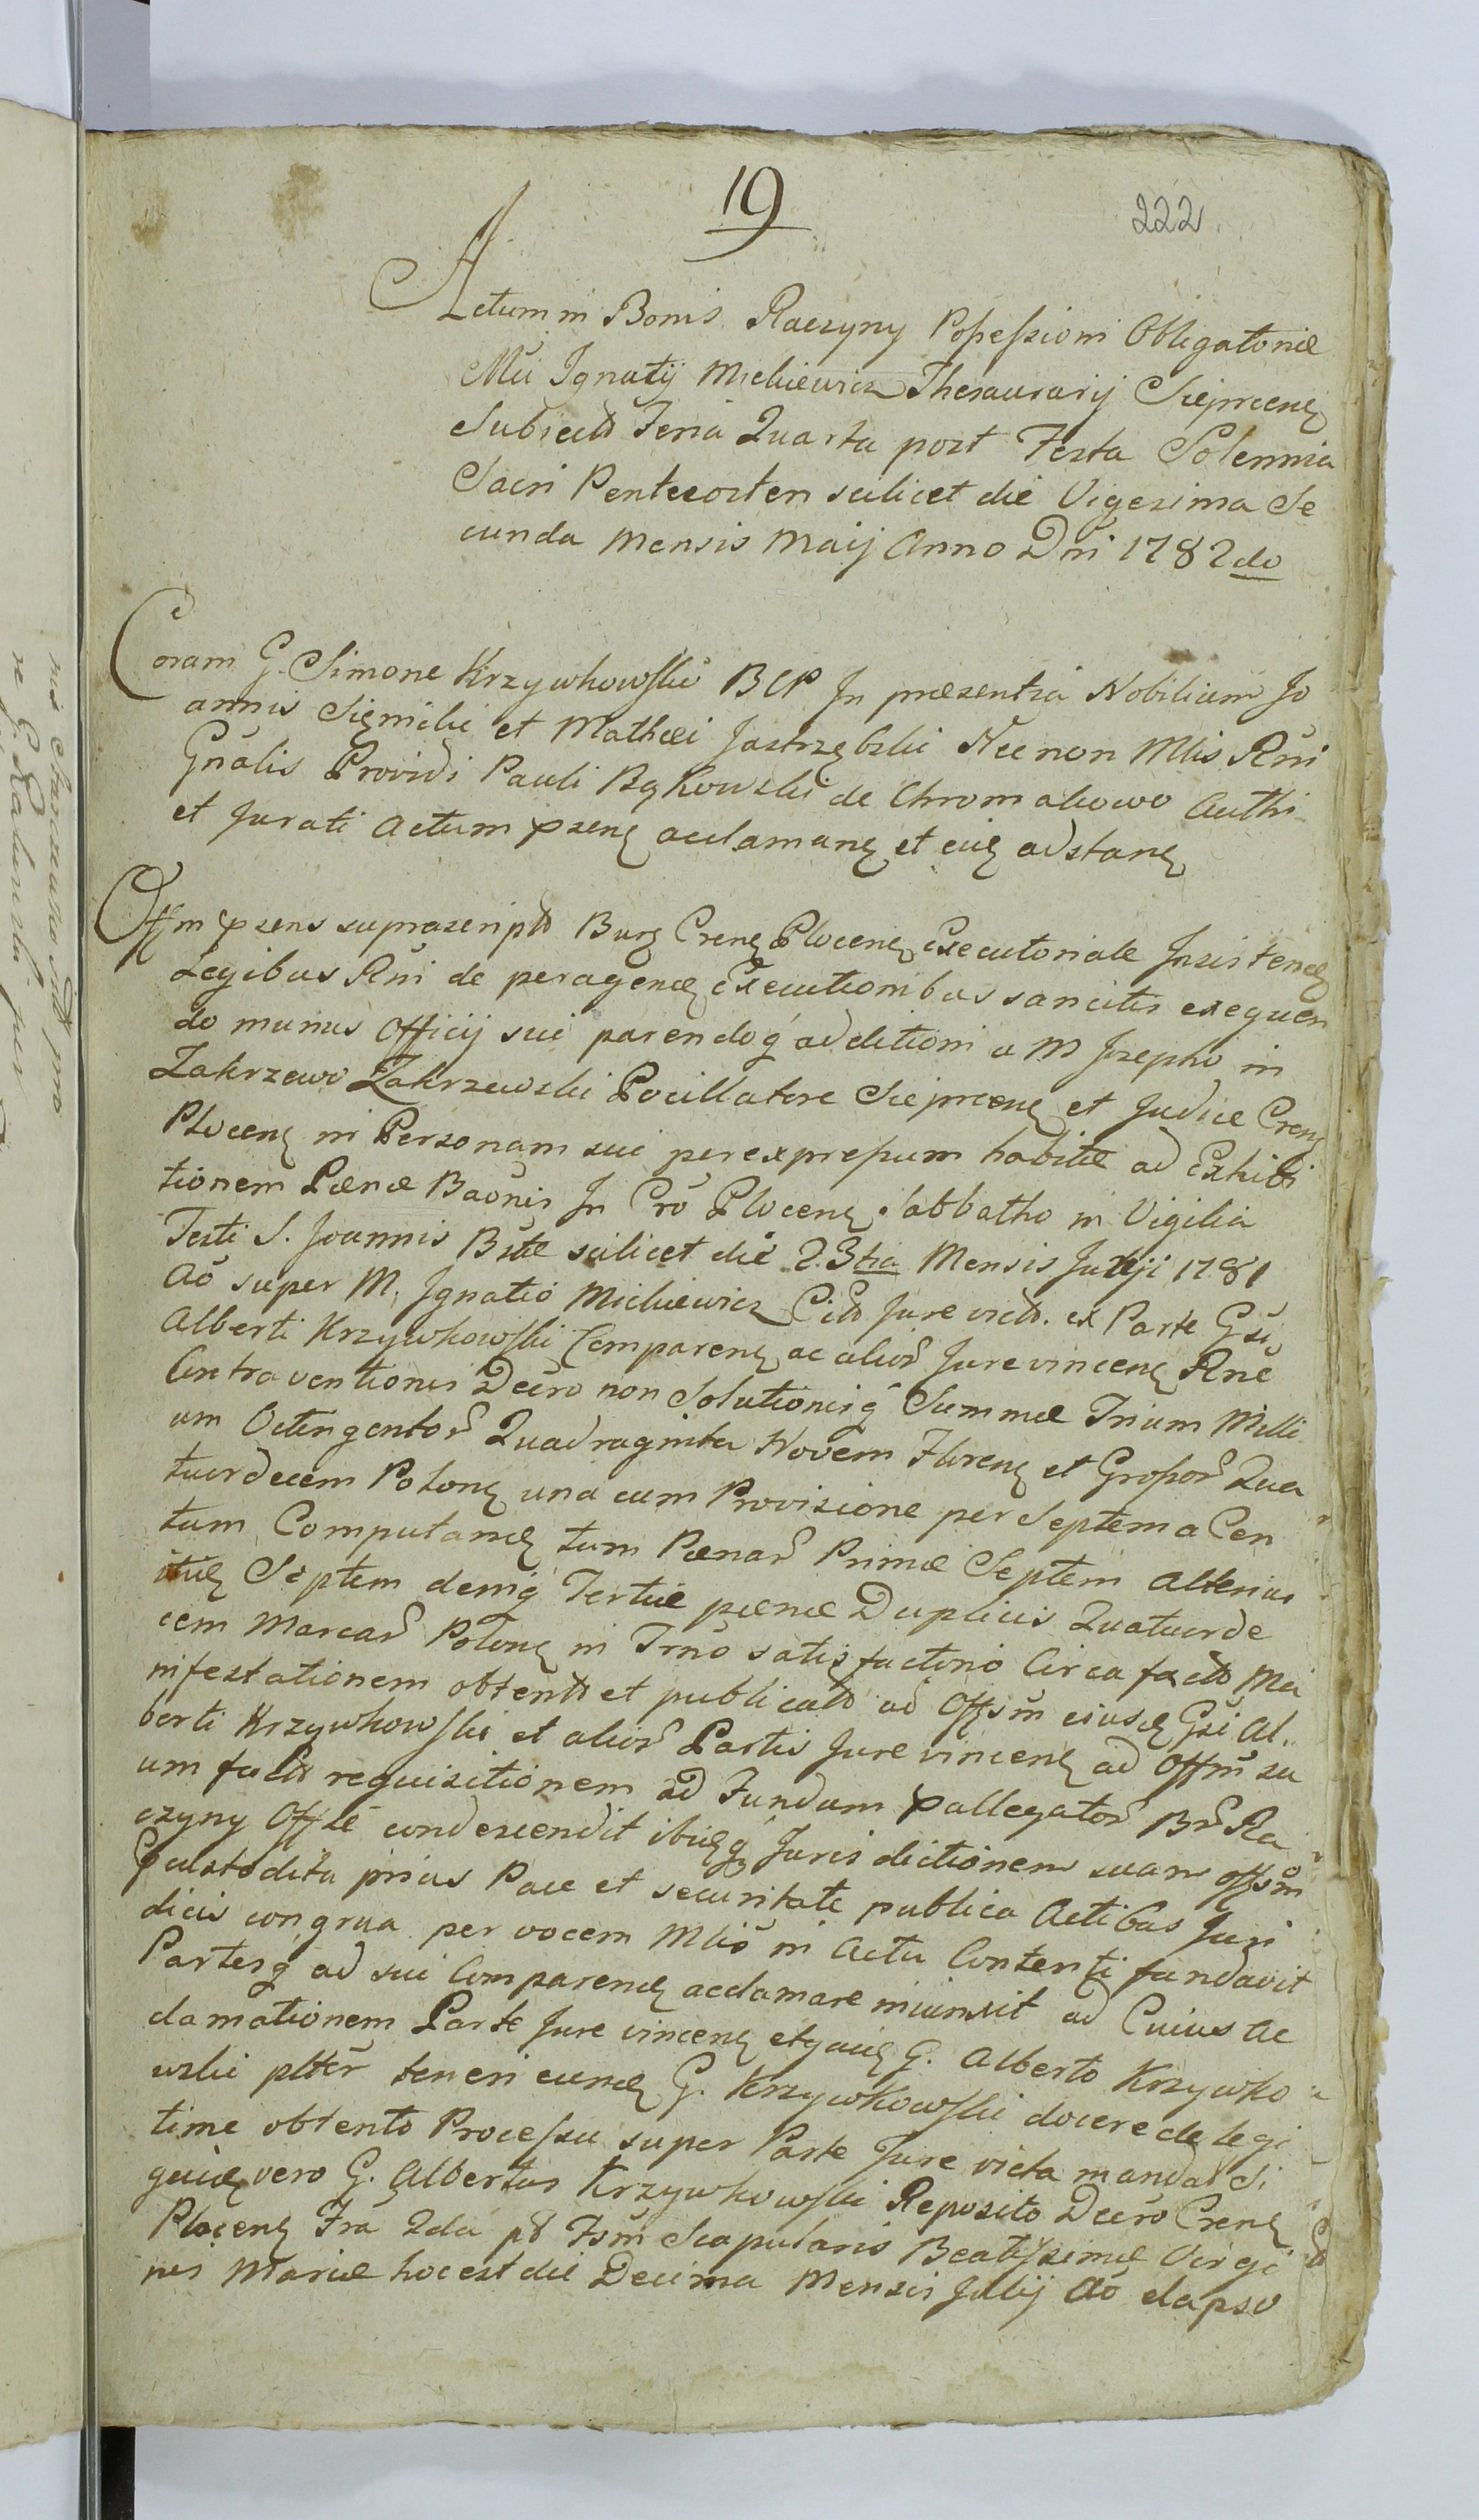 19
222
Actum in Bonis Raczyny Possessioni Obligatoriæ
Mci Ignatij Mickiewicz Thesaurarij Sieprcenę
Subiectis Feria Quarta post Festa Solennia
Sacri Pentecosten scilicet die Vigesima Se
cunda Mensis Maij Anno Dni 1782do
Coram G. Simone Krzywkowski BCP In præsentia Nobilium Jo
annis et Mathæi Jastrzębski Nec non Mlis Rni
Gnâlis Providi Pauli Bąkowski de Chromakowo Authi
et Jurati Actum pzenę acclamanę et eiię adstanę
Offm pzens suprascripto Burg Crenę Plocenę Executoriale Insistendę
Legibus Rni de peragendę Executionibus sancitis exequen
do munus Officij sui parendoq́ additioni a M Josepho in
Zakrzewo Zakrzewski Pocillatore Sieprcenę et Judice Crenę
Plocenę in Personam sui per expressum habitæ ad Exhibi
tionem Pænæ Baônis In Crô Plocenę Sabbatho in Vigilia
Festi S. Joannis Bttæ scilicet die 23tia Mensis Junji 1781
Aô super M. Ignatio Mickiewicz Citto Jure victo. ex Parte Gsi
Alberti Krzywkowski Comparenę ac alior Jurevincenę Rne
Contraventionis Decro non Solutionisq́ Summæ Trium Milli
um Octingentor Quadraginta Novem Florenę et Grossor Qua
tuordecem Polonę una cum Provisione per Septem a Cen
tum Computandę tum Pænar Primæ Septem alterius
itidę Septem deniq́ Tertiæ pænæ Duplicis Quatuorde
cem Marcar Polonę in Trnô satisfactorio Circa facto Ma
nifestationem obtento et publicato ad Offsm eiusdę Gsi Al
berti Krzywkowski et alior Partis Jure vincenę ad Offm su
um facto requisitionem ad Fundum pallegator Br Ra
czyny Offsè condescendit ibidęq́ Juris dictionem suam offsm
Custodita prius Pace et securitate publica Actibus Juri
dicis congrua per vocem Mlis in Actu Contenti fundavit
Partesq́ ad sui Comparendę acclamare iniunxit ad Cuius Ac
clamationem Parte Jure vincenę G. Alberto Krzywko
wski plter teneri eundę G. Krzywkowski docere de legi
time obtento Processu super Parte Jure victa mandat Si
quidę vero G. Albertus Krzywkowski Reposito Decrô Crenę
Plocenę Fra 2da pt Fsm Scapularis Beatissimæ Virgi
nis Mariæ hoc est die Decima Mensis Julij Aô elapso